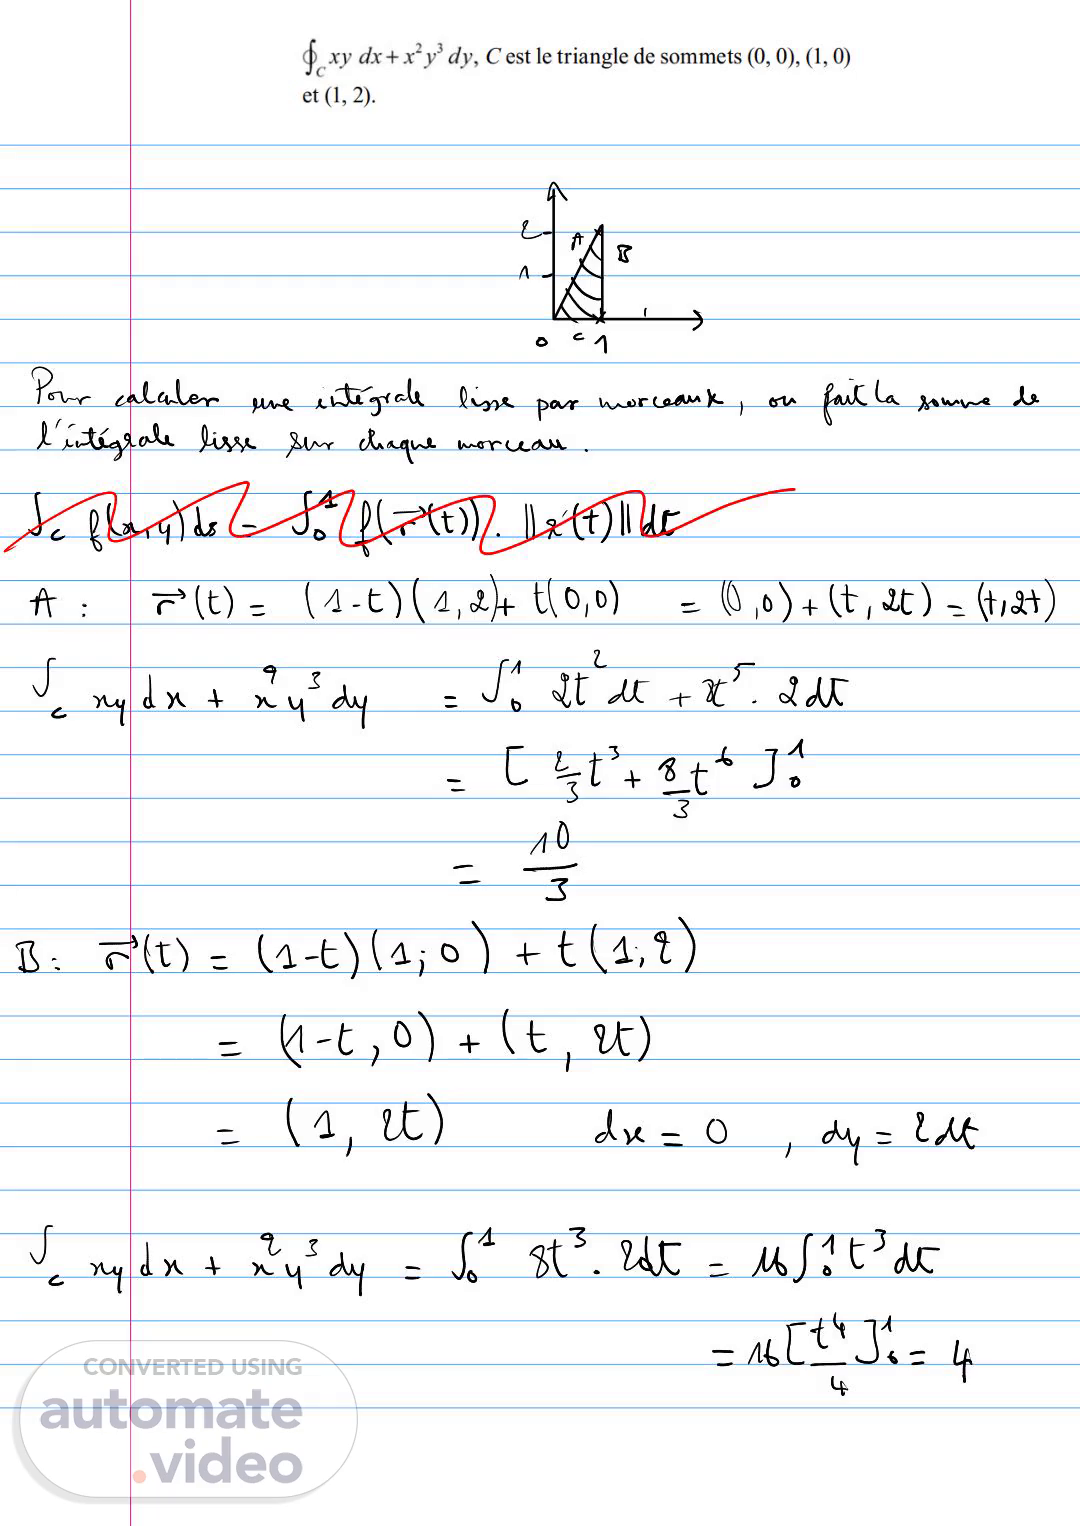 ∮_C xy dx + x²y³ dy, C est le triangle de sommets (0, 0), (1, 0)
et (1, 2).
2
A
B
1
0 C 1
Pour calculer une intégrale lisse par morceaux, on fait la somme de
l'intégrale lisse sur chaque morceau.
∫_C f(x,y) ds = ∫₀¹ f(r⃗(t)). ||r'(t)|| dt
A : r⃗(t) = (1-t)(1,2) + t(0,0) = (0,0) + (t, 2t) = (t, 2t)
∫_C xy dx + x²y³ dy = ∫₀¹ 2t² dt + t⁵. 2dt
= [ 2/3 t³ + 8/3 t⁶ ]₀¹
= 10/3
B: r⃗(t) = (1-t)(1; 0) + t(1; 2)
= (1-t, 0) + (t, 2t)
= (1, 2t) dx = 0 , dy = 2dt
∫_C xy dx + x²y³ dy = ∫₀¹ 8t³. 2dt = 16 ∫₀¹ t³ dt
= 16 [t⁴/4]₀¹ = 4
CONVERTED USING
automate
.video